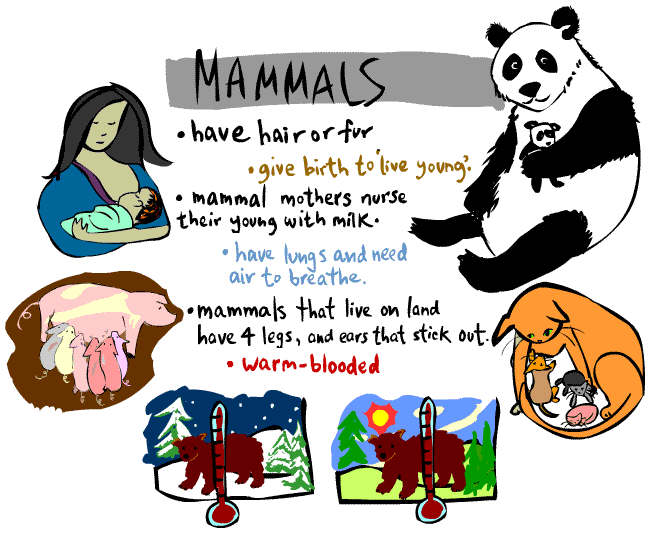 MAMMALS
• have hair or fur
• give birth to 'live young'.
• mammal mothers nurse
their young with milk.
• have lungs and need
air to breathe.
• mammals that live on land
have 4 legs, and ears that stick out.
• warm-blooded